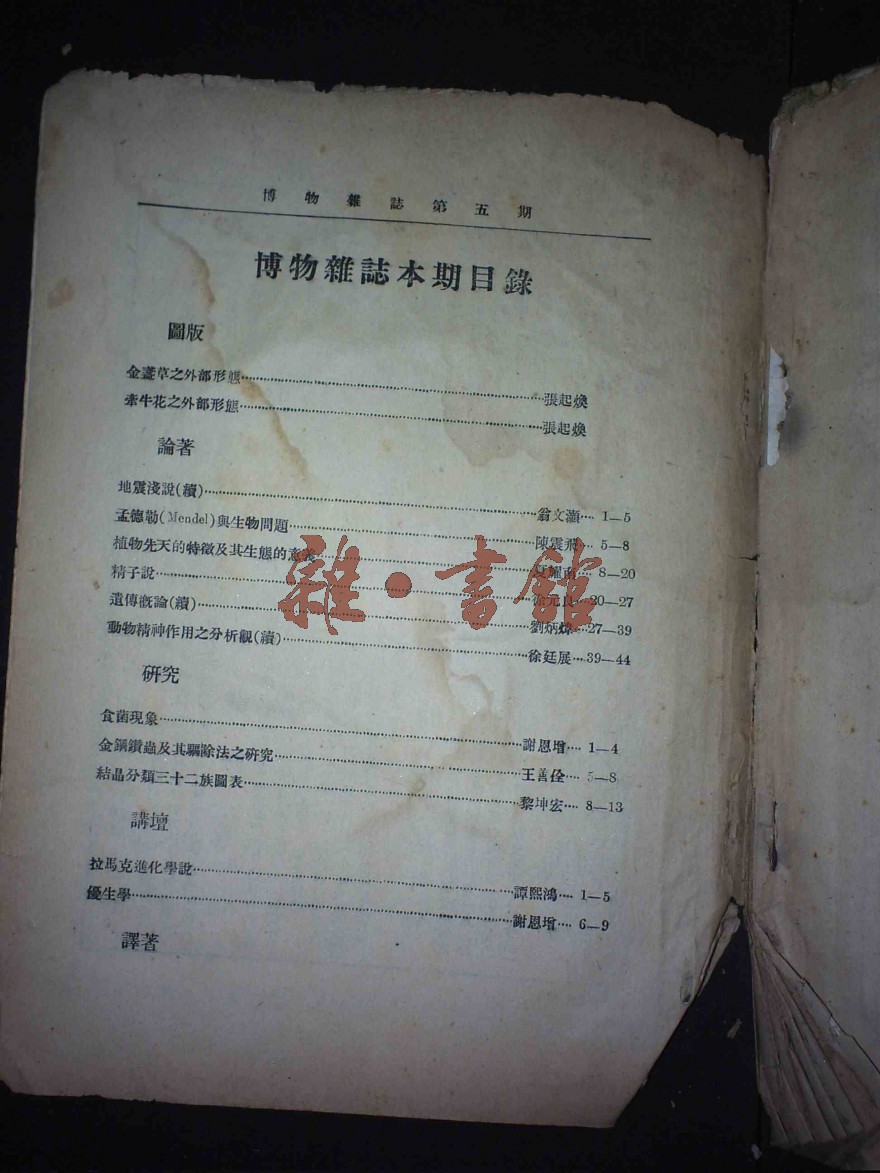 博物雜誌第五期
博物雜誌本期目錄
圖版
金盞草之外部形態……張起煥
牽牛花之外部形態……張起煥
論著
地震淺說(續)……翁文灝… 1—5
孟德勒(Mendel)與生物問題……陳雲飛… 5—8
植物先天的特徵及其生態的意義……夏耀南… 8—20
精子說……徐元良…20—27
遺傳概論(續)……劉炳…27—39
動物精神作用之分析觀(續)……徐廷展…39—44
研究
食菌現象……謝恩增… 1—4
金鋼鑽蟲及其驅除法之研究……王善佺… 5—8
結晶分類三十二族圖表……黎坤宏… 8—13
講壇
拉馬克進化學說……譚熙鴻… 1—5
優生學……謝恩增… 6—9
譯著
雜·書館